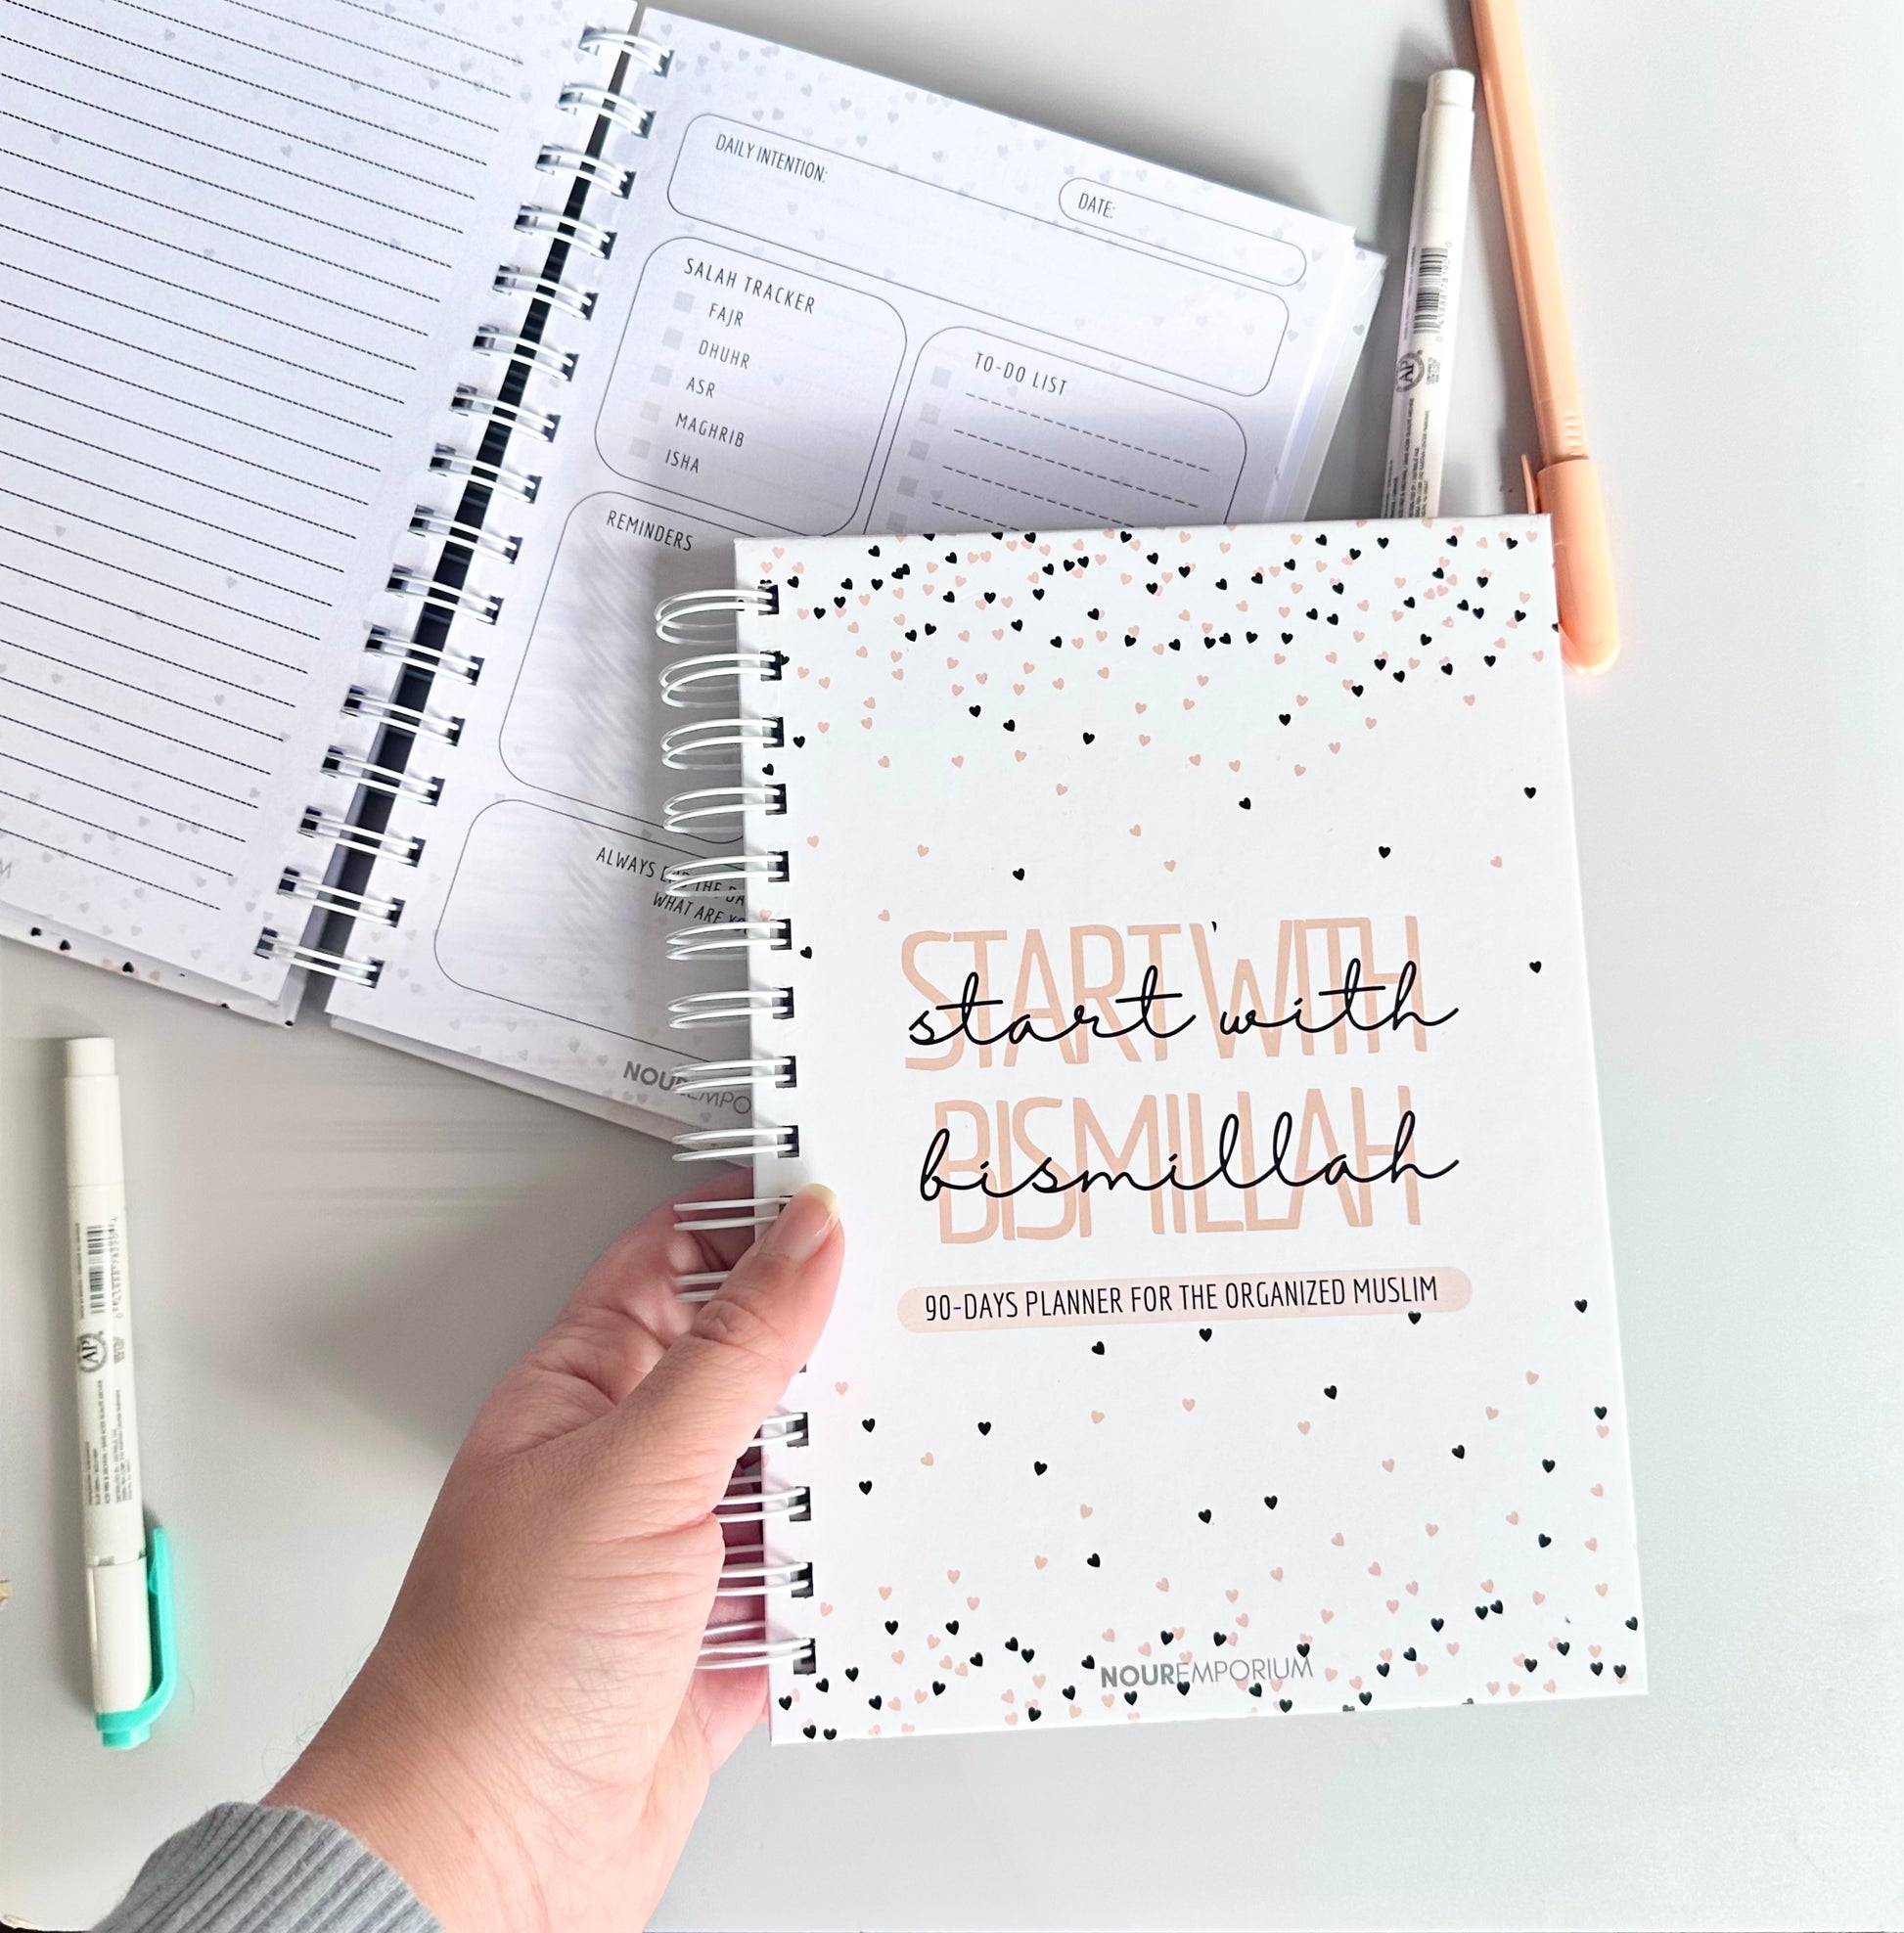 DAILY INTENTION:
DATE:
SALAH TRACKER
FAJR
DHUHR
ASR
MAGHRIB
ISHA
TO-DO LIST
REMINDERS
ALWAYS
WHAT ARE
START WITH
start with
BISMILLAH
bismillah
90-DAYS PLANNER FOR THE ORGANIZED MUSLIM
NOUREMPORIUM